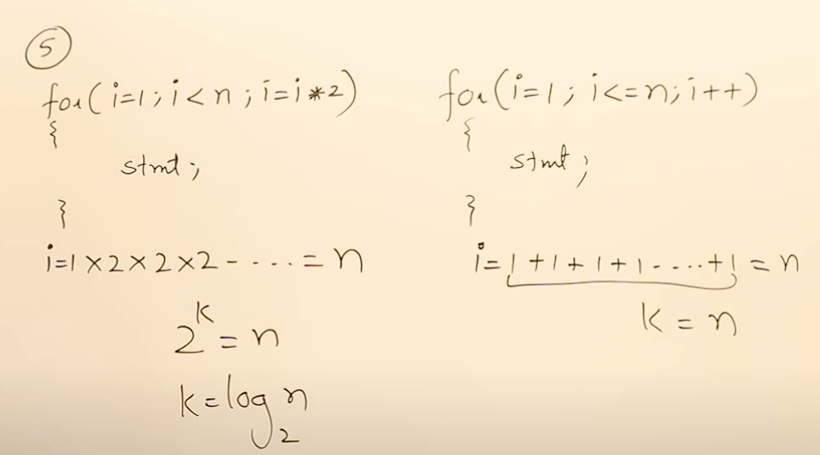 5
for(i=1; i<n; i=i*2)
{
stmt;
}
i=1×2×2×2-----=n
2^k=n
k=log₂n
for(i=1; i<=n; i++)
{
stmt;
}
i=1+1+1+1-----+1=n
k=n